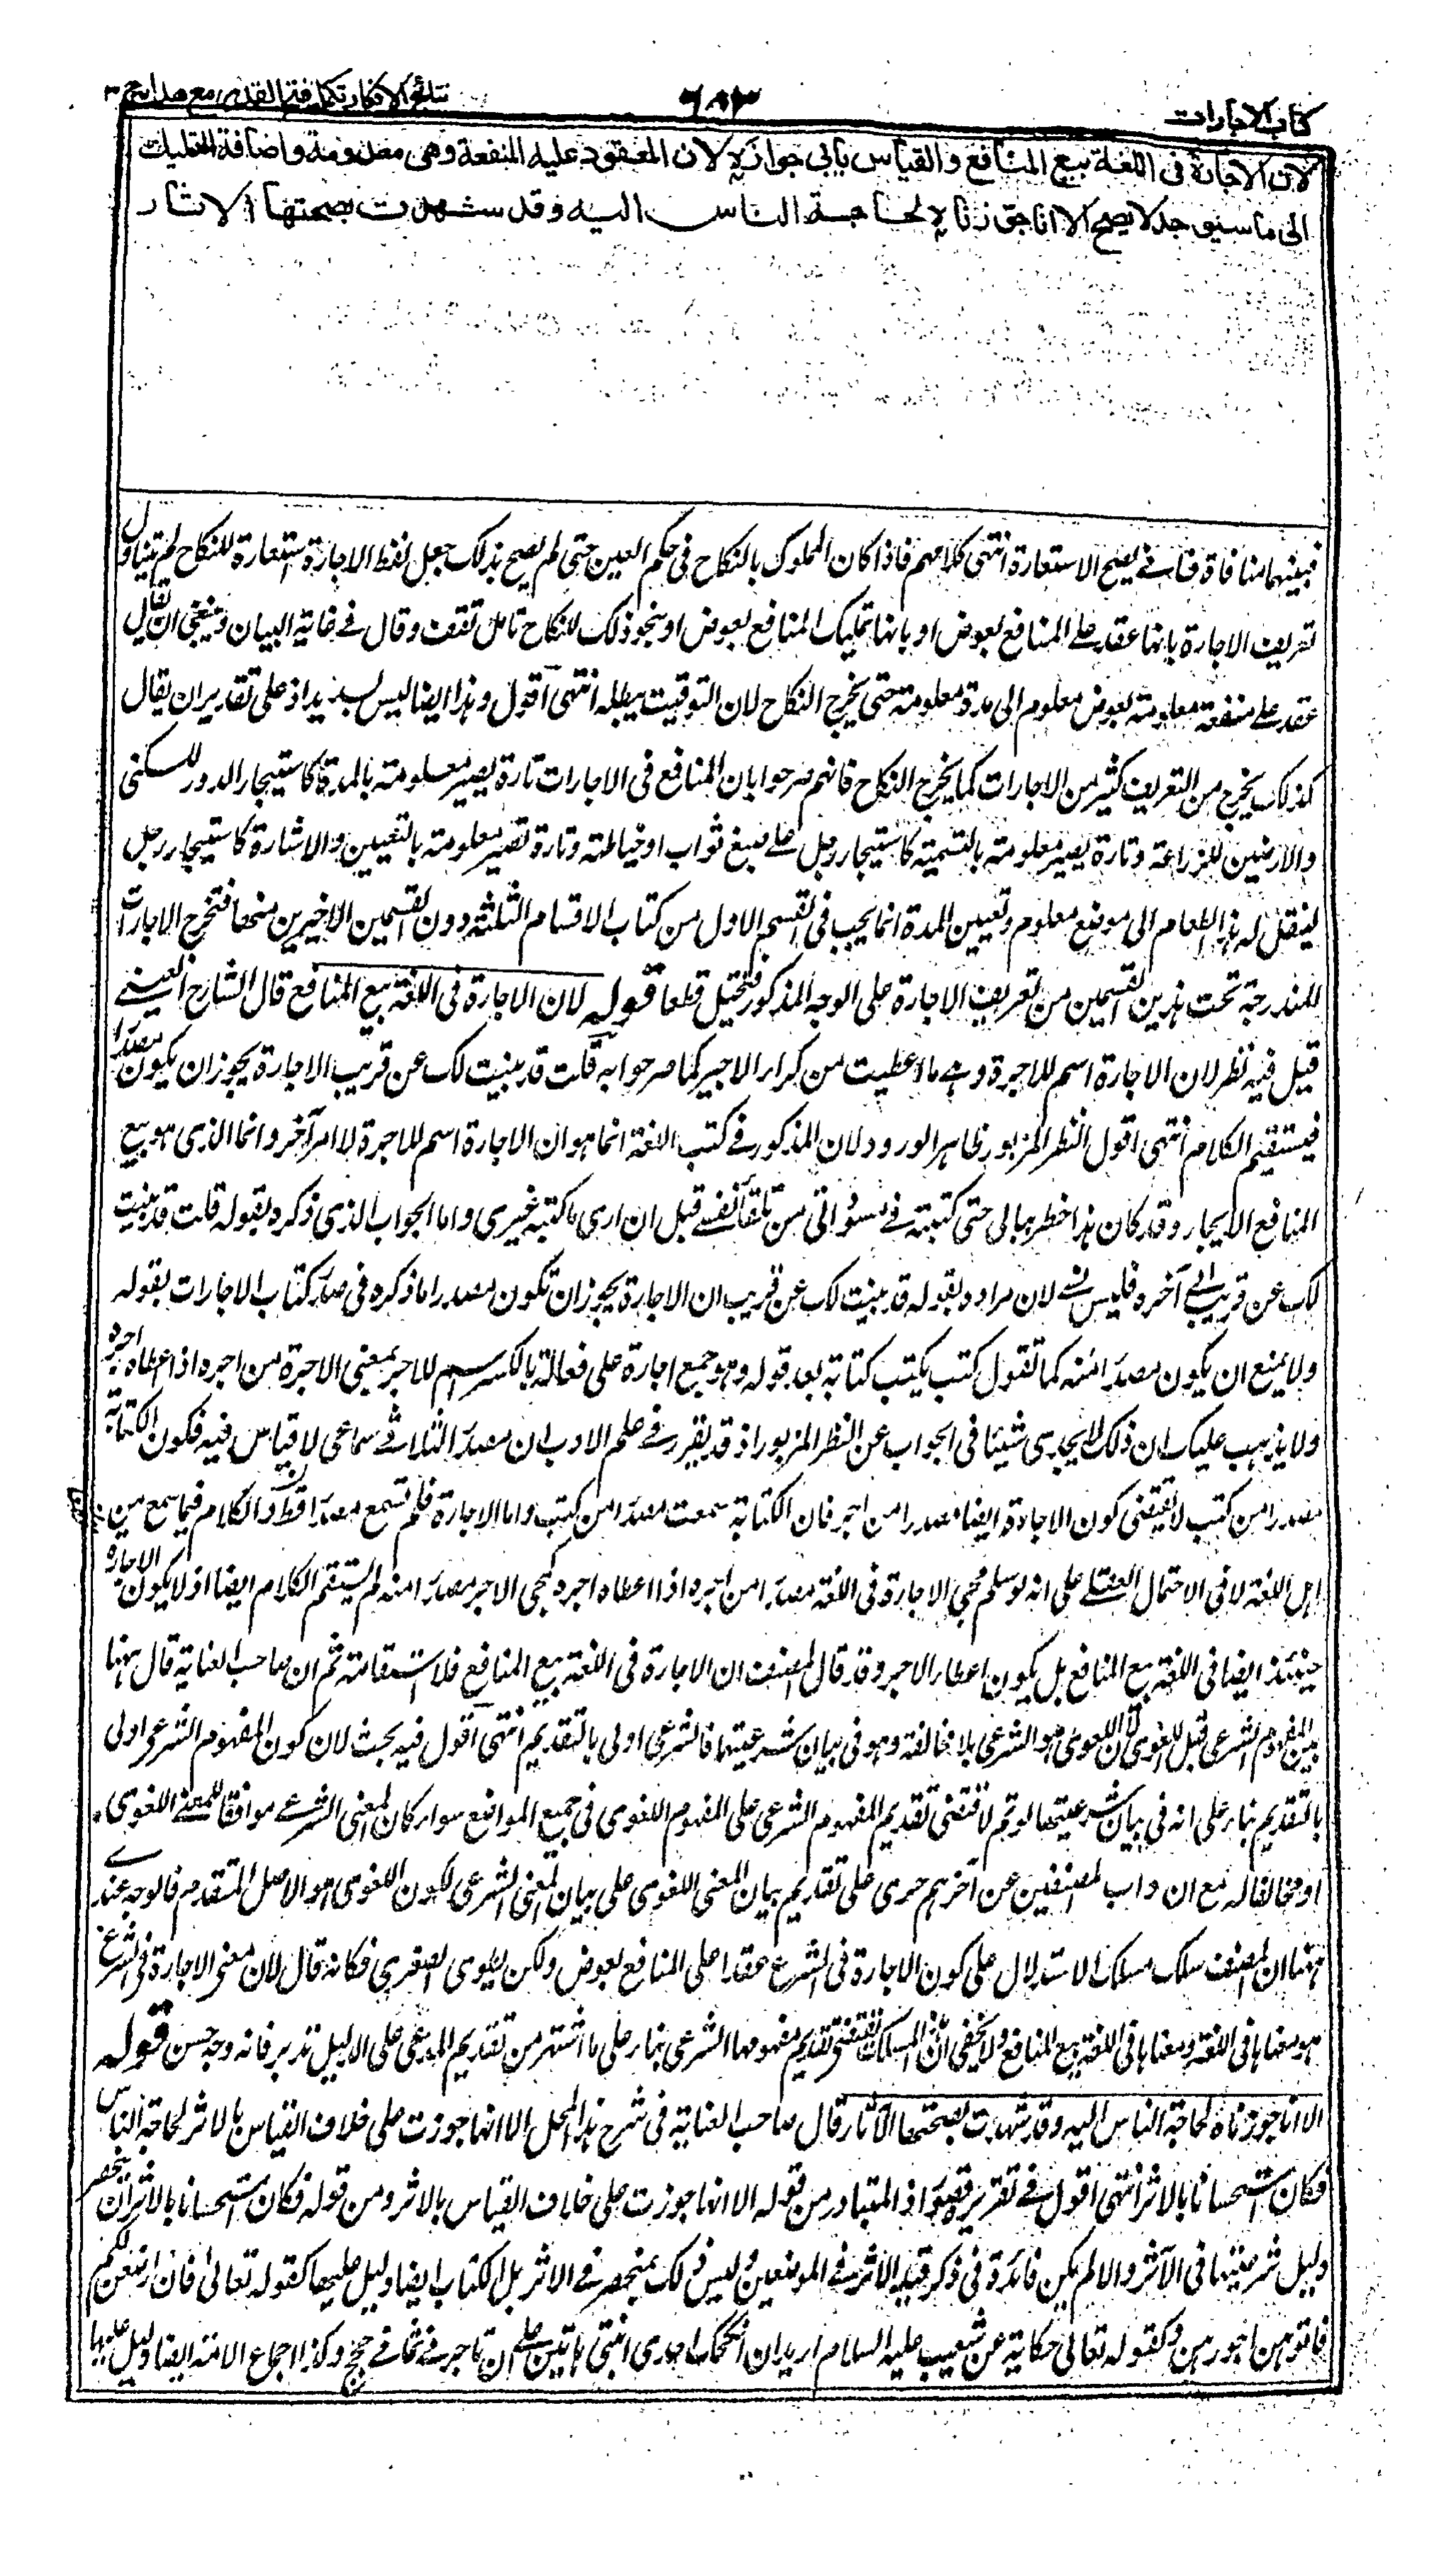 كتاب الاجارات
٦٨٣
نتائج الافكار تكملة فتح القدير مع هدايه ج ٣
لان الاجارة فى اللغة بيع المنافع والقياس يابى جوازه لان المعقود عليه المنفعة وهى معدومة واضافة التمليك
الى ما سيوجد لا يصح الا انا جوزناه لحاجة الناس اليه وقد شهدت بصحتها الاثار
فبينهما منافاة فانے يصح الاستعارة انتهى كلامهم فاذا كان المملوك بالنكاح فى حكم العين حتى لم يصح بذلك جعل لفظ الاجارة استعارة للنكاح لم يتناول
تعريف الاجارة بانها عقد على المنافع بعوض او بانها تمليك المنافع بعوض او بنحو ذلك للنكاح تامل تقف وقال فے غاية البيان وينبغى ان يقال
عقد على منفعة معلومة بعوض معلوم الى مدة معلومة حتى يخرج النكاح لان التوقيت يبطله انتهى اقول وهذا ايضا ليس بسديد اذ على تقدير ان يقال
كذلك يخرج من التعريف كثير من الاجارات كما يخرج النكاح فانهم صرحوا بان المنافع فى الاجارات تارة يصير معلومة بالمدة كاستيجار الدور للسكنى
والارضين للزراعة وتارة يصير معلومة بالتسمية كاستيجار رجل على صبغ ثواب او خياطته وتارة تصير معلومة بالتعيين والاشارة كاستيجار رجل
لينقل له هذا الطعام الى موضع معلوم وتعيين المدة انما يجب فى القسم الاول من كتاب الاقسام الثلثة دون القسمين الاخيرين منها فتخرج الاجارات
المندرجة تحت هذين القسمين من تعريف الاجارة على الوجه المذكور فتختل قطعا قوله لان الاجارة فى اللغة بيع المنافع قال الشارح العينے
قيل فيه نظر لان الاجارة اسم للاجرة وہے ما اعطيت من كراء الاجير كما صرحوا به قلت قد بينت لك عن قريب الاجارة يجوز ان يكون مصدرا
فيستقيم الكلام انتهى اقول النظر المزبور ظاهر الورود لان المذكور فے كتب اللغة انما هو ان الاجارة اسم للاجرة لا امر آخر وانما الذى هو بيع
المنافع الايجار وقد كان هذا خطر ببالى حتى كتبته فے مسوداتى من تلقاء نفسے قبل ان ارى ما كتبه غيرى واما الجواب الذى ذكره بقوله قلت قد بينت
لك عن قريب الے آخره فليس بشے لان مراده بقوله قد بينت لك عن قريب ان الاجارة يجوز ان تكون مصدرا ما ذكره فى صدر كتاب الاجارات بقوله
ولا يمنع ان يكون مصدرا منه كما تقول كتب يكتب كتابة بعد قوله وهو جمع اجارة على فعالة بالكسر اسم للاجر بمعنى الاجرة من اجره اذا اعطاه اجره
ولا يذهب عليك ان ذلك لا يجدى شيئا فى الجواب عن النظر المزبور اذ قد تقرر فے علم الادب ان مصدر الثلاثے سماعى لا قياس فيه فكون الكتابة
مصدرا من كتب لا يقتضى كون الاجارة ايضا مصدرا من اجر فان الكتابة سمعت مصدرا من كتب واما الاجارة فلم تسمع مصدرا قط والكلام فيما سمع من
اہل اللغة لا فى الاحتمال العقلے على انه لو سلم مجئ الاجارة فى اللغة مصدرا من اجره اذا اعطاه اجره كمجئ الاجر مصدرا منه لم يستقم الكلام ايضا اذ لا يكون الاجارة
حينئذ ايضا فى اللغة بيع المنافع بل يكون اعطاء الاجر وقد قال المصنف ان الاجارة فى اللغة بيع المنافع فلا استقامة ثم ان صاحب العناية قال ههنا
بين المفهوم الشرعى قبل اللغوى لان اللغوى هو الشرعى بلا مخالفة وهو فى بيان شرعيتها فالشرعى اولى بالتقديم انتهى اقول فيه بحث لان كون المفهوم الشرعى اولى
بالتقديم بناء على انه فى بيان شرعيتها لو تم لاقتضى تقديم المفهوم الشرعى على المفهوم اللغوى فى جميع المواضع سواء كان المعنى الشرعے موافقا للمعنے اللغوى
او مخالفا له مع ان داب المصنفين عن آخرهم جرى على تقديم بيان المعنى اللغوى على بيان المعنى الشرعى لكون اللغوى هو الاصل المتقدم فالوجه عندے
ههنا ان المصنف سلك مسلك الاستدلال على كون الاجارة فى الشرع عقدا على المنافع بعوض ولكن طوى الصغرى فكانه قال لان معنى الاجارة فى الشرع
هو معناها فى اللغة ومعناها فى اللغة بيع المنافع ولا يخفى ان هذا المسلك يقتضى تقديم مفهومها الشرعى بناء على ما اشتهر من تقديم المدعى على الدليل تدبر فانه وجه حسن قوله
الا انا جوزناه لحاجة الناس اليه وقد شهدت بصحتها الآثار قال صاحب العناية فى شرح هذا المحل الا انها جوزت على خلاف القياس بالاثر لحاجة الناس
فكان استحسانا بالاثر انتهى اقول فے تقريره قصور اذ المتبادر من قوله الا انها جوزت على خلاف القياس بالاثر ومن قوله فكان استحسانا بالاثر ان ينحصر
دليل شرعيتها فى الآثر والا لم يكن فائدة فى ذكر قيد الاثر فے الموضعين وليس ذلك بمنحصر فے الاثر بل الكتاب ايضا دليل عليها كقوله تعالى فان ارضعن لكم
فآتوهن اجورهن وكقوله تعالى حكاية عن شعيب عليه السلام اريد ان انكحك احدى ابنتى هاتين على ان تاجرنے ثمانے حجج وكذا اجماع الامة ايضا دليل عليها